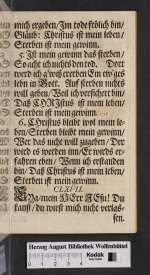 mich ergeben/Im tode frölich bin/
Glaub: Christus ist mein leben/
Sterben ist mein gewinn.
5. Ist mein gewinn das sterben/
So acht ich nichts den tod. Dort
werd ich ewig ererben Ein ewiges
lebn in Gott. Auf sterben nichts
will geben/ Weil ich versichert bin/
Daß CHRistus ist mein leben/
Sterben ist mein gewinn.
6. CHristus bleibt wol mein leben/
Sterben bleibt mein gewinn.
Wer das nicht will zugeben/ Der
wird es werden inn/ Er wird's erfahren
eben/ Wenn ich erstanden
bin/ Daß Christus ist mein leben/
Sterben ist mein gewinn.
CLXVII.
mein HErr JEsu! Du
kanst/ du wirst mich nicht verlas-
sen.
Herzog August Bibliothek Wolfenbüttel
Kodak